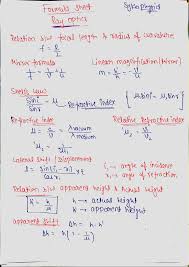 Formula sheet
Ray optics
Relation b/w focal length & radius of curvature
f = R/2
Mirror formula
Linear magnification (mirror)
1/f = 1/v + 1/u
Snell's law
= Refractive index
Refractive index
Relative Refractive index
μ = c/v = λ vacuum / λ medium
Lateral shift / Displacement
i, → angle of incidence
r, → angle of refraction
Relation b/w apparent height & Actual height
h → actual height
h' → apparent height
apparent shift
Δh = h - h'
Δh = h(1 - 1/μ)